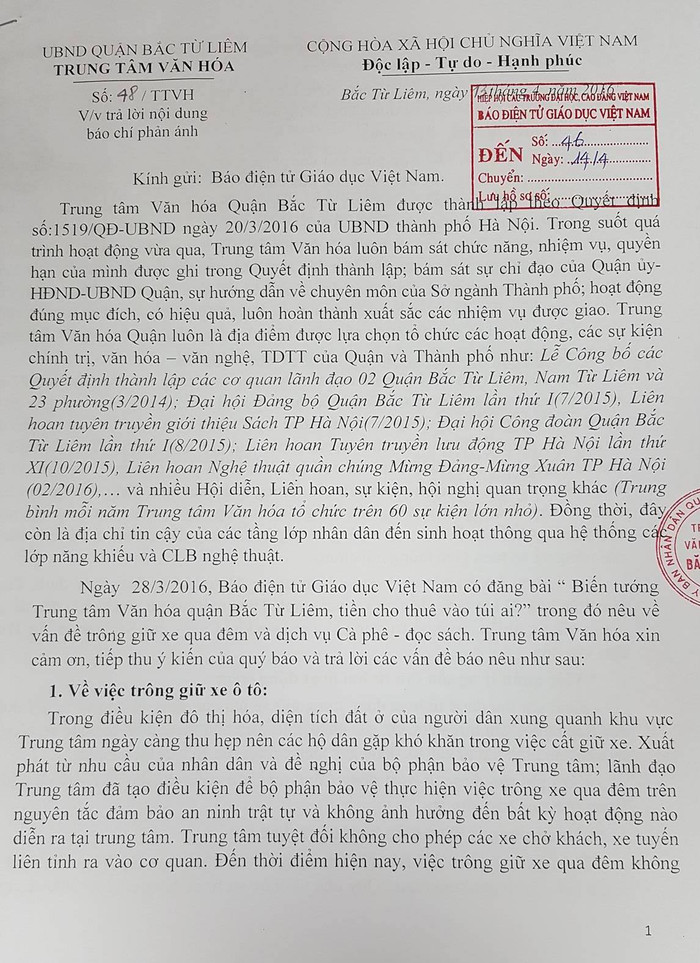 UBND QUẬN BẮC TỪ LIÊM
TRUNG TÂM VĂN HÓA
Số: 48 / TTVH
V/v trả lời nội dung
báo chí phản ánh
CỘNG HÒA XÃ HỘI CHỦ NGHĨA VIỆT NAM
Độc lập - Tự do - Hạnh phúc
Bắc Từ Liêm, ngày 12 tháng 4 năm 2016
HIỆP HỘI CÁC TRƯỜNG ĐẠI HỌC, CAO ĐẲNG VIỆT NAM
BÁO ĐIỆN TỬ GIÁO DỤC VIỆT NAM
ĐẾN
Số: ...46...
Ngày: ...14/4...
Chuyển: ...
Lưu hồ sơ số: ...
Kính gửi: Báo điện tử Giáo dục Việt Nam.
Trung tâm Văn hóa Quận Bắc Từ Liêm được thành lập theo Quyết định
số:1519/QĐ-UBND ngày 20/3/2016 của UBND thành phố Hà Nội. Trong suốt quá
trình hoạt động vừa qua, Trung tâm Văn hóa luôn bám sát chức năng, nhiệm vụ, quyền
hạn của mình được ghi trong Quyết định thành lập; bám sát sự chỉ đạo của Quận ủy-
HĐND-UBND Quận, sự hướng dẫn về chuyên môn của Sở ngành Thành phố; hoạt động
đúng mục đích, có hiệu quả, luôn hoàn thành xuất sắc các nhiệm vụ được giao. Trung
tâm Văn hóa Quận luôn là địa điểm được lựa chọn tổ chức các hoạt động, các sự kiện
chính trị, văn hóa – văn nghệ, TDTT của Quận và Thành phố như: Lễ Công bố các
Quyết định thành lập các cơ quan lãnh đạo 02 Quận Bắc Từ Liêm, Nam Từ Liêm và
23 phường(3/2014); Đại hội Đảng bộ Quận Bắc Từ Liêm lần thứ I(7/2015), Liên
hoan tuyên truyền giới thiệu Sách TP Hà Nội(7/2015); Đại hội Công đoàn Quận Bắc
Từ Liêm lần thứ I(8/2015); Liên hoan Tuyên truyền lưu động TP Hà Nội lần thứ
XI(10/2015), Liên hoan Nghệ thuật quần chúng Mừng Đảng-Mừng Xuân TP Hà Nội
(02/2016),... và nhiều Hội diễn, Liên hoan, sự kiện, hội nghị quan trọng khác (Trung
bình mỗi năm Trung tâm Văn hóa tổ chức trên 60 sự kiện lớn nhỏ). Đồng thời, đây
còn là địa chỉ tin cậy của các tầng lớp nhân dân đến sinh hoạt thông qua hệ thống các
lớp năng khiếu và CLB nghệ thuật.
Ngày 28/3/2016, Báo điện tử Giáo dục Việt Nam có đăng bài “ Biến tướng
Trung tâm Văn hóa quận Bắc Từ Liêm, tiền cho thuê vào túi ai?” trong đó nêu về
vấn đề trông giữ xe qua đêm và dịch vụ Cà phê - đọc sách. Trung tâm Văn hóa xin
cảm ơn, tiếp thu ý kiến của quý báo và trả lời các vấn đề báo nêu như sau:
1. Về việc trông giữ xe ô tô:
Trong điều kiện đô thị hóa, diện tích đất ở của người dân xung quanh khu vực
Trung tâm ngày càng thu hẹp nên các hộ dân gặp khó khăn trong việc cất giữ xe. Xuất
phát từ nhu cầu của nhân dân và đề nghị của bộ phận bảo vệ Trung tâm; lãnh đạo
Trung tâm đã tạo điều kiện để bộ phận bảo vệ thực hiện việc trông xe qua đêm trên
nguyên tắc đảm bảo an ninh trật tự và không ảnh hưởng đến bất kỳ hoạt động nào
diễn ra tại trung tâm. Trung tâm tuyệt đối không cho phép các xe chở khách, xe tuyến
liên tỉnh ra vào cơ quan. Đến thời điểm hiện nay, việc trông giữ xe qua đêm không
1